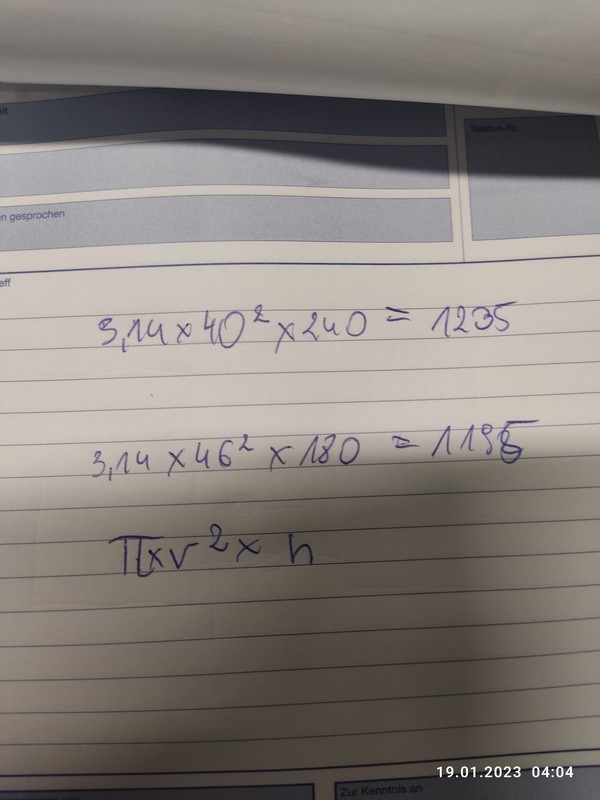 Telefon-Nr.
en gesprochen
eff
3,14 x 40² x 240 = 1235
3,14 x 46² x 180 = 1195
π x r² x h
Zur Kenntnis an
19.01.2023 04:04